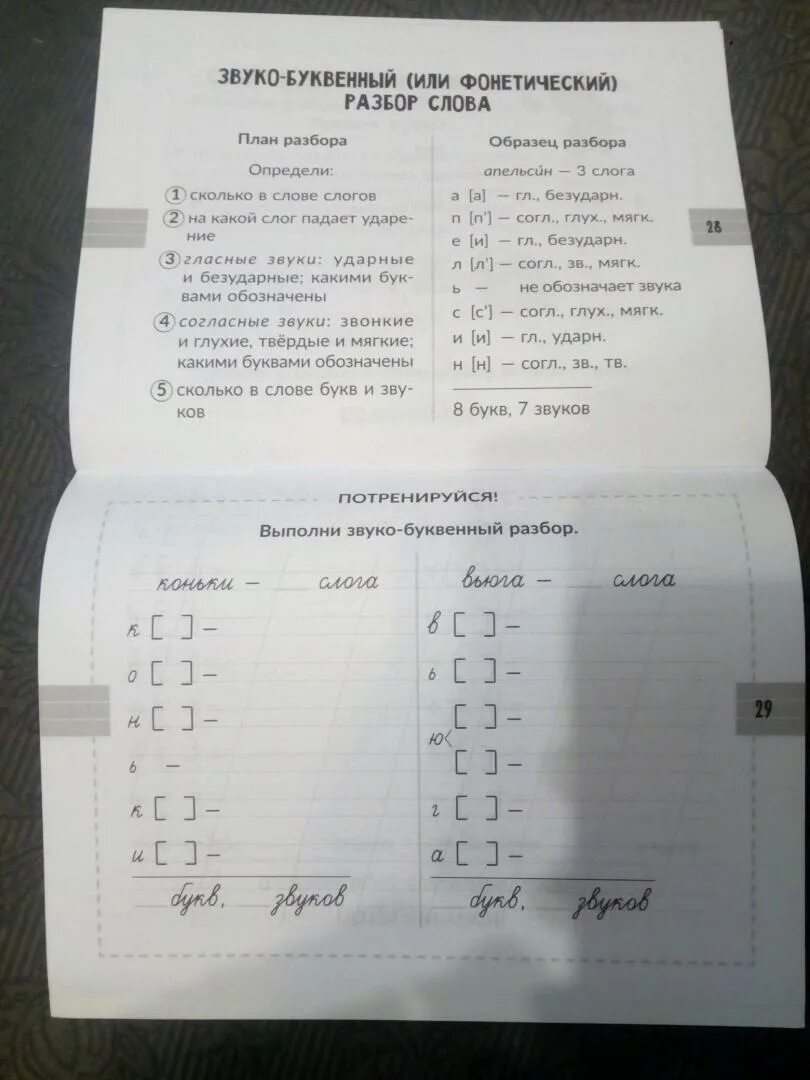 ЗВУКО-БУКВЕННЫЙ (ИЛИ ФОНЕТИЧЕСКИЙ)
РАЗБОР СЛОВА
План разбора
Определи:
1 сколько в слове слогов
2 на какой слог падает ударе-
ние
3 гласные звуки: ударные
и безударные; какими бук-
вами обозначены
4 согласные звуки: звонкие
и глухие, твёрдые и мягкие;
какими буквами обозначены
5 сколько в слове букв и зву-
ков
Образец разбора
апельси́н — 3 слога
а [а] — гл., безударн.
п [п'] — согл., глух., мягк.
е [и] — гл., безударн.
л [л'] — согл., зв., мягк.
ь — не обозначает звука
с [с'] — согл., глух., мягк.
и [и] — гл., ударн.
н [н] — согл., зв., тв.
8 букв, 7 звуков
28
ПОТРЕНИРУЙСЯ!
Выполни звуко-буквенный разбор.
коньки – ___ слога
к [ ] –
о [ ] –
н [ ] –
ь –
к [ ] –
и [ ] –
букв, звуков
вьюга – ___ слога
в [ ] –
ь [ ] –
[ ] –
ю<
[ ] –
г [ ] –
а [ ] –
букв, звуков
29